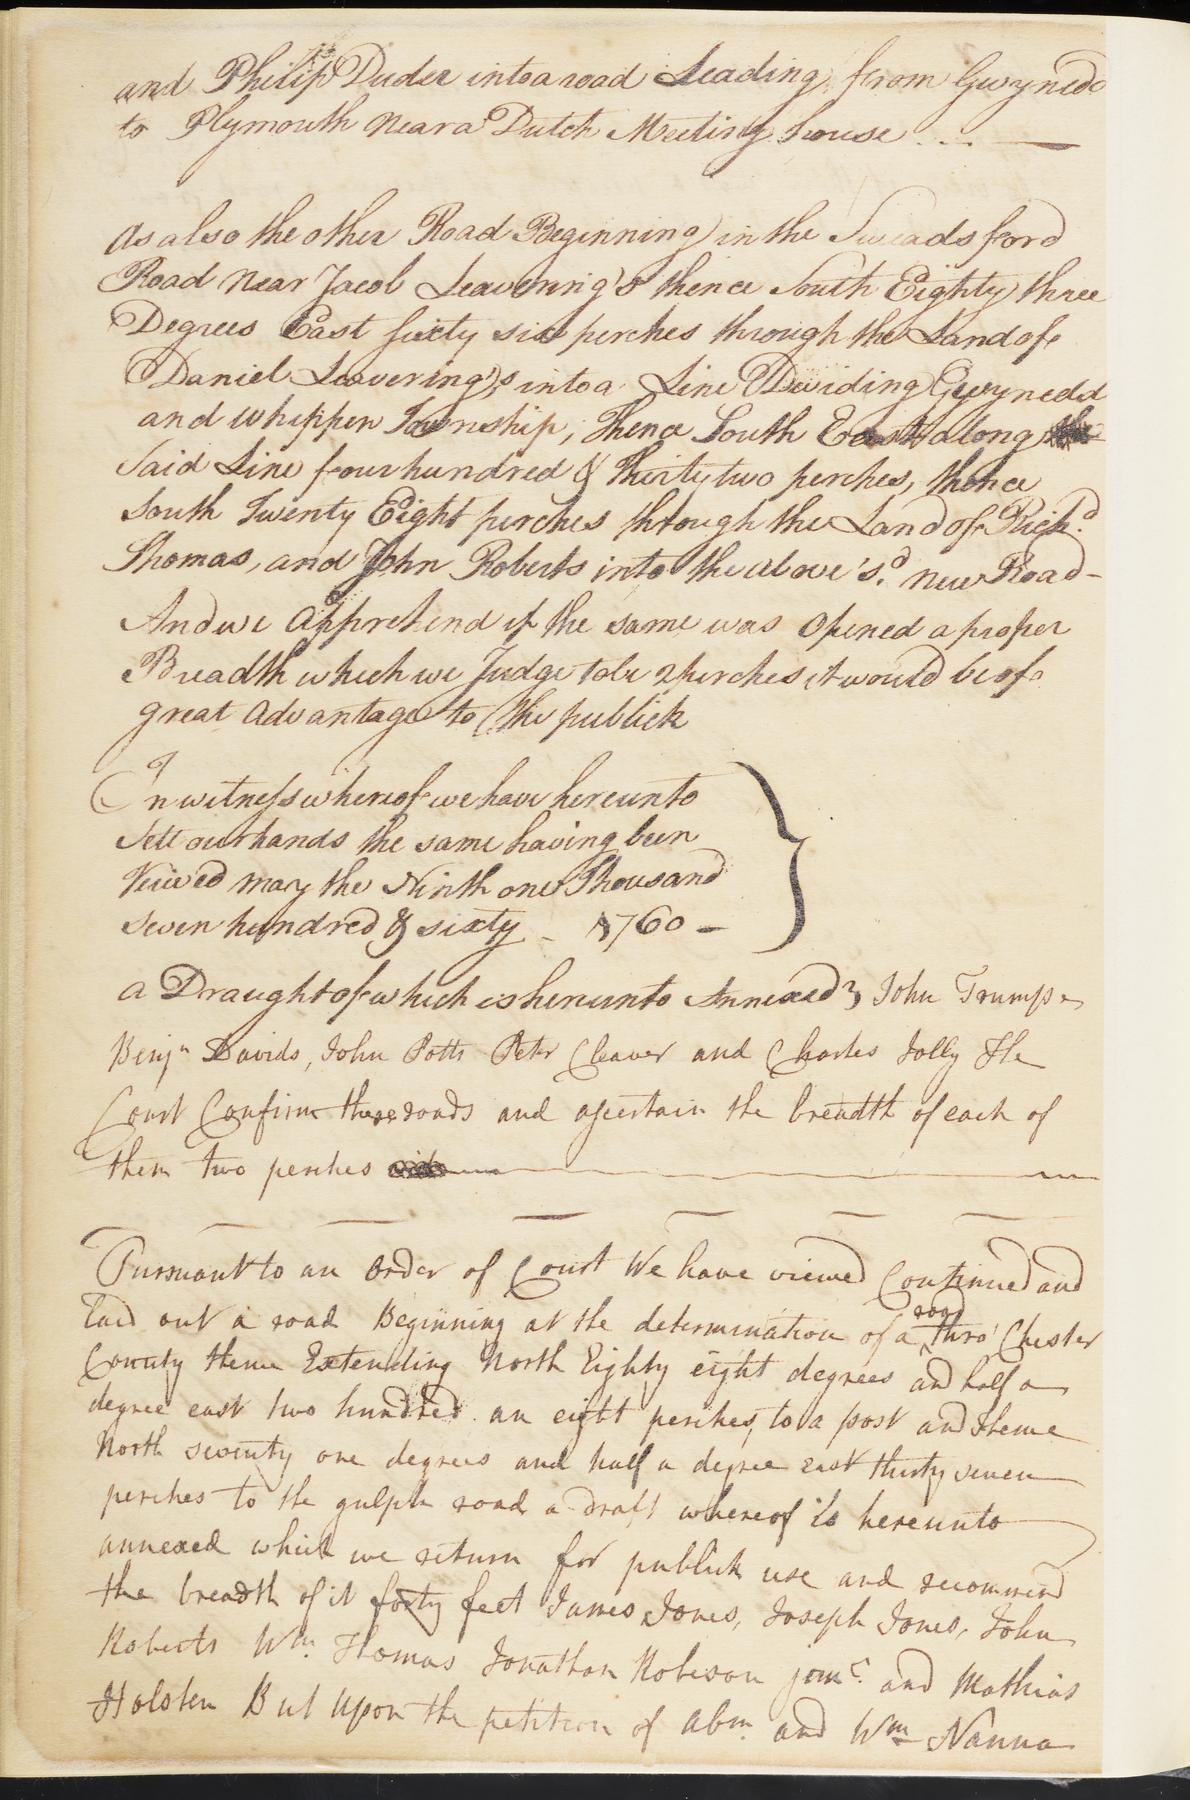 and Philip Duder into a road Leading from Gwynedd
to Plymouth Near a Dutch Meeting house
As also the other Road Beginning in the Sweadsford
Road Near Jacob Leavering's thence South Eighty three
Degrees East sixty six perches through the Land of
Daniel Leavering's, into a Line Dividing Gwynedd
and Whippen Township, Thence South East along the
Said Line four hundred & Thirty two perches, thence
South Twenty Eight perches through the Land of Richd.
Thomas, and John Roberts into the above sd. new Road
And we apprehend if the same was opened a proper
Breadth which we Judge to be 2 perches it would be of
great advantage to the publick
In witness whereof we have hereunto
Sett our hands the same having been
Veiwed may the Ninth one Thousand
seven hundred & sixty - 1760 -
a Draught of which is hereunto Annexed John Trump
Benjn Davids, John Potts Peter Cleaver and Charles Jolly The
Court Confirm these roads and ascertain the breadth of each of
them two perches
Pursuant to an Order of Court We have viewed Continued and
laid out a road Beginning at the determination of a road thro' Chester
County thence Extending North Eighty eight degrees and half a
degree east two hundred an eight perches, to a post and thence
North seventy one degrees and half a degree east thirty seven
perches to the gulph road a draft whereof is hereunto
annexed which we return for publick use and recommend
the breadth of it forty feet James Jones, Joseph Jones, John
Roberts Wm. Thomas Jonathan Robeson junr. and Mathias
Holsten But Upon the petition of Abm. and Wm Nanna